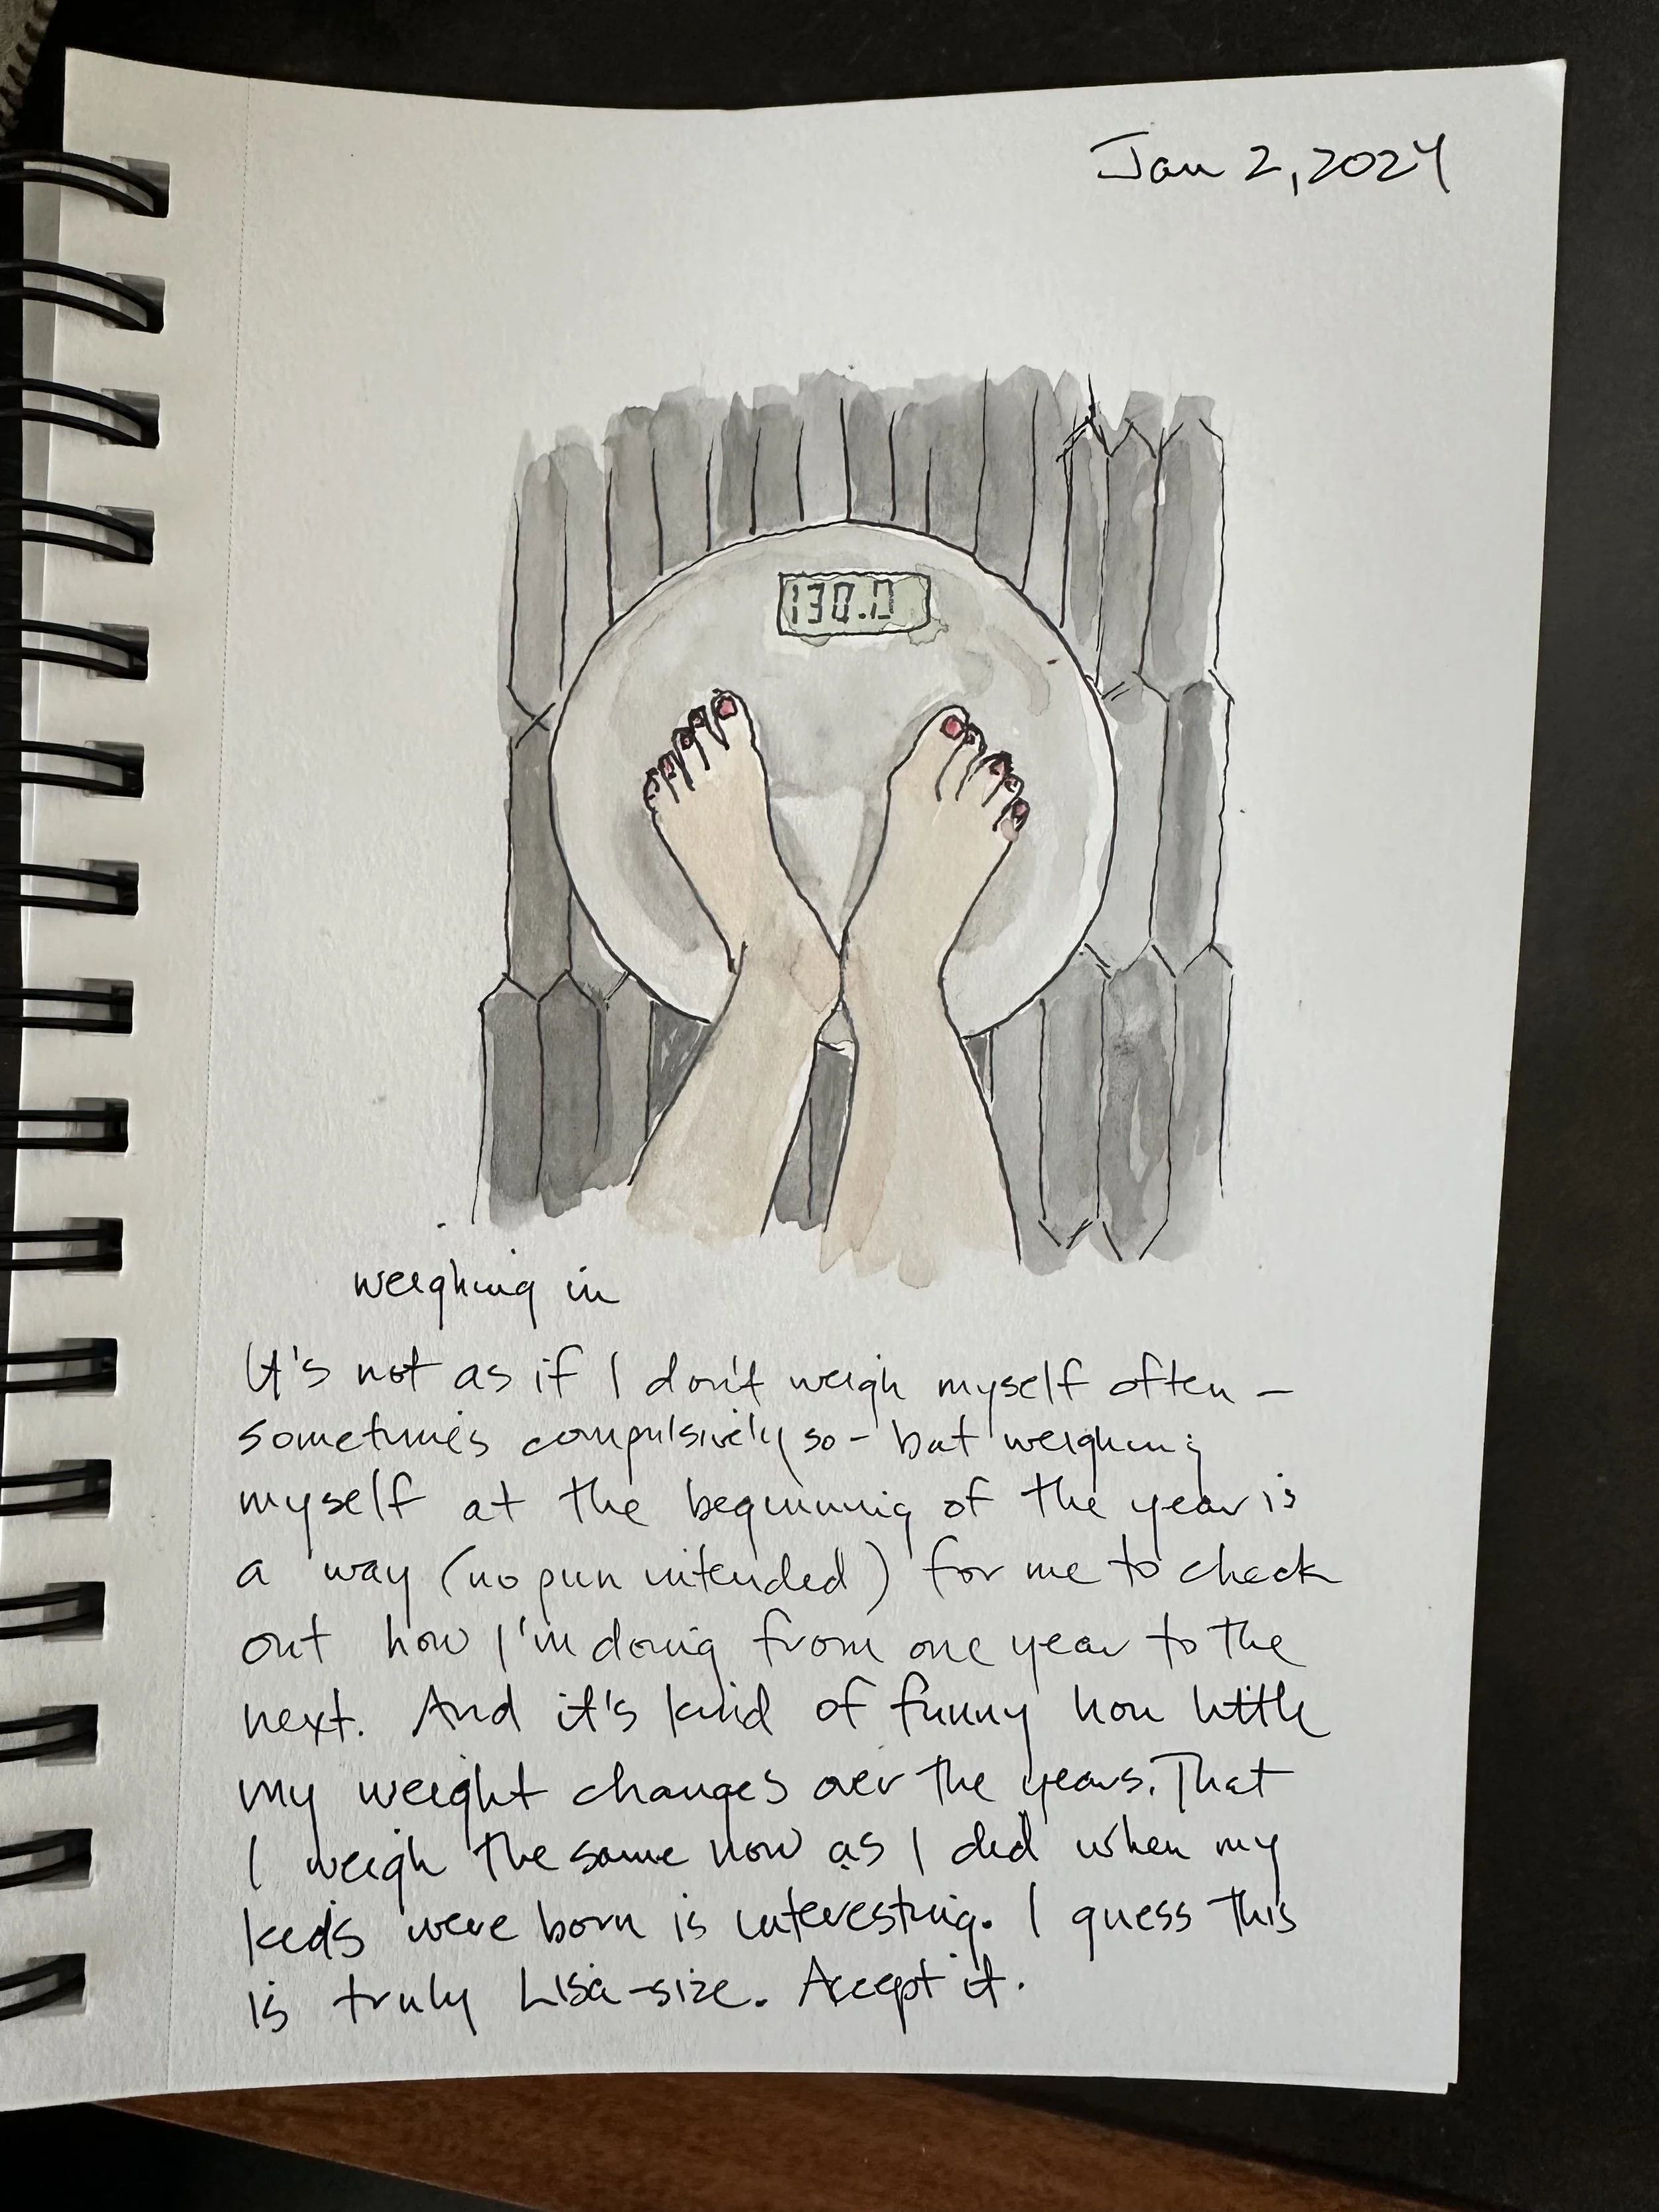 Jan 2, 2024
130.0
weighing in
It's not as if I don't weigh myself often –
sometimes compulsively so – but weighing
myself at the beginning of the year is
a way (no pun intended) for me to check
out how I'm doing from one year to the
next. And it's kind of funny how little
my weight changes over the years. That
I weigh the same now as I did when my
kids were born is interesting. I guess this
is truly Lisa-size. Accept it.